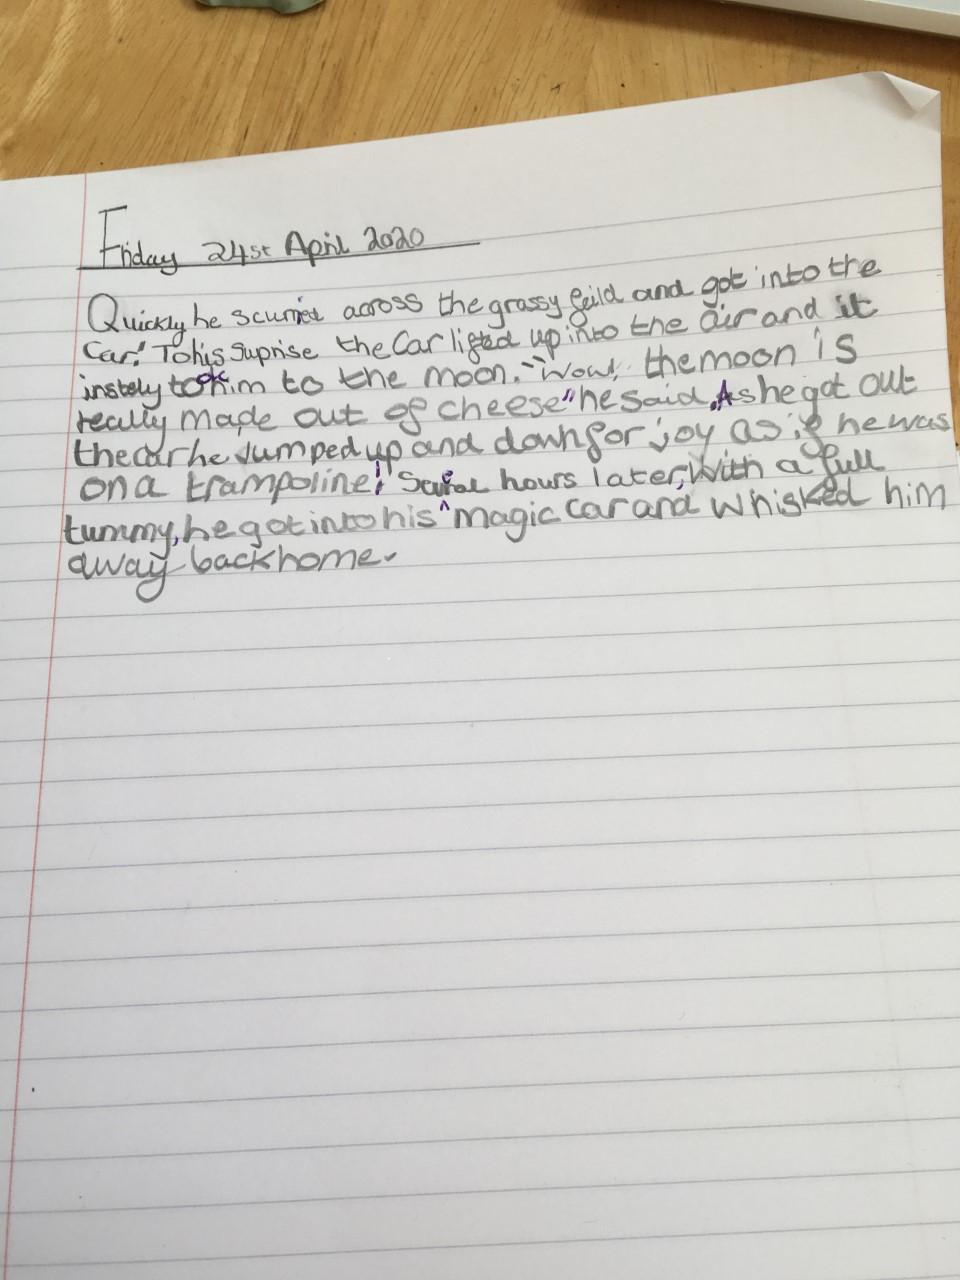 Friday 24st April 2020
Quickly he scurried across the grassy feild and got into the
car! To his suprise the car lifted up into the air and it
instely took him to the moon. "Wow, the moon is
really made out of cheese" he said. As he got out
the car he Jumped up and down for joy as if he was
on a trampoline! hours later, with a full
tummy, he got into his magic car and whisked him
away back home.